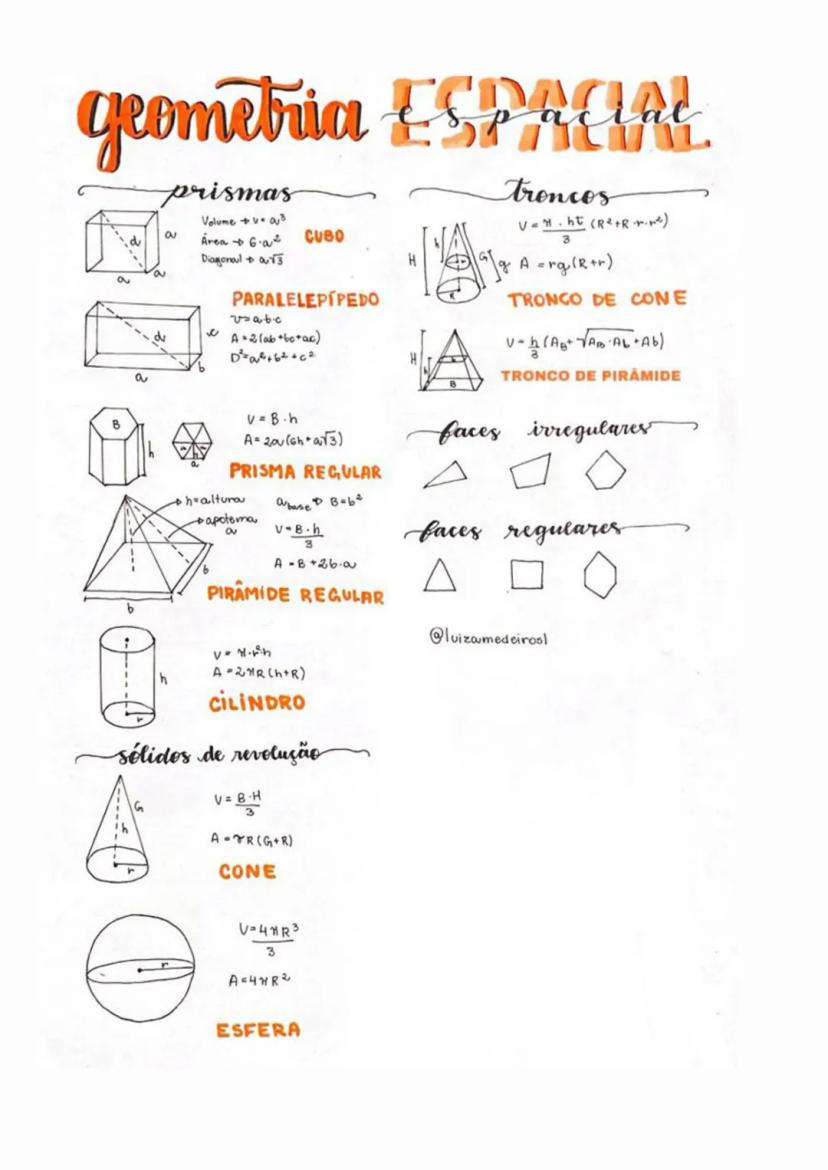 geometria ESPACIAL
espacial
prismas
d
a
a
a
Volume → V = a³
Área → 6·a²
Diagonal → a√3
CUBO
PARALELEPÍPEDO
d
c
b
a
V = a·b·c
A = 2(ab+bc+ac)
D² = a²+b²+c²
B
h
a
V = B·h
A = 2a(6h+a√3)
PRISMA REGULAR
h = altura
apotema
a
b
b
abase → B = b²
V = B·h
3
A = B + 2b·a
PIRÂMIDE REGULAR
h
r
V = π·r²·h
A = 2πR(h+R)
CILINDRO
sólidos de revolução
G
h
r
V = B·H
3
A = πR(G+R)
CONE
r
V = 4πR³
3
A = 4πR²
ESFERA
troncos
H
h
r
R
G
g
V = π·ht (R²+R·r·r²)
3
A = rg(R+r)
TRONCO DE CONE
H
h
B
V = h (AB+√AB·Ab+Ab)
3
TRONCO DE PIRÂMIDE
faces irregulares
faces regulares
@luizamedeiros1